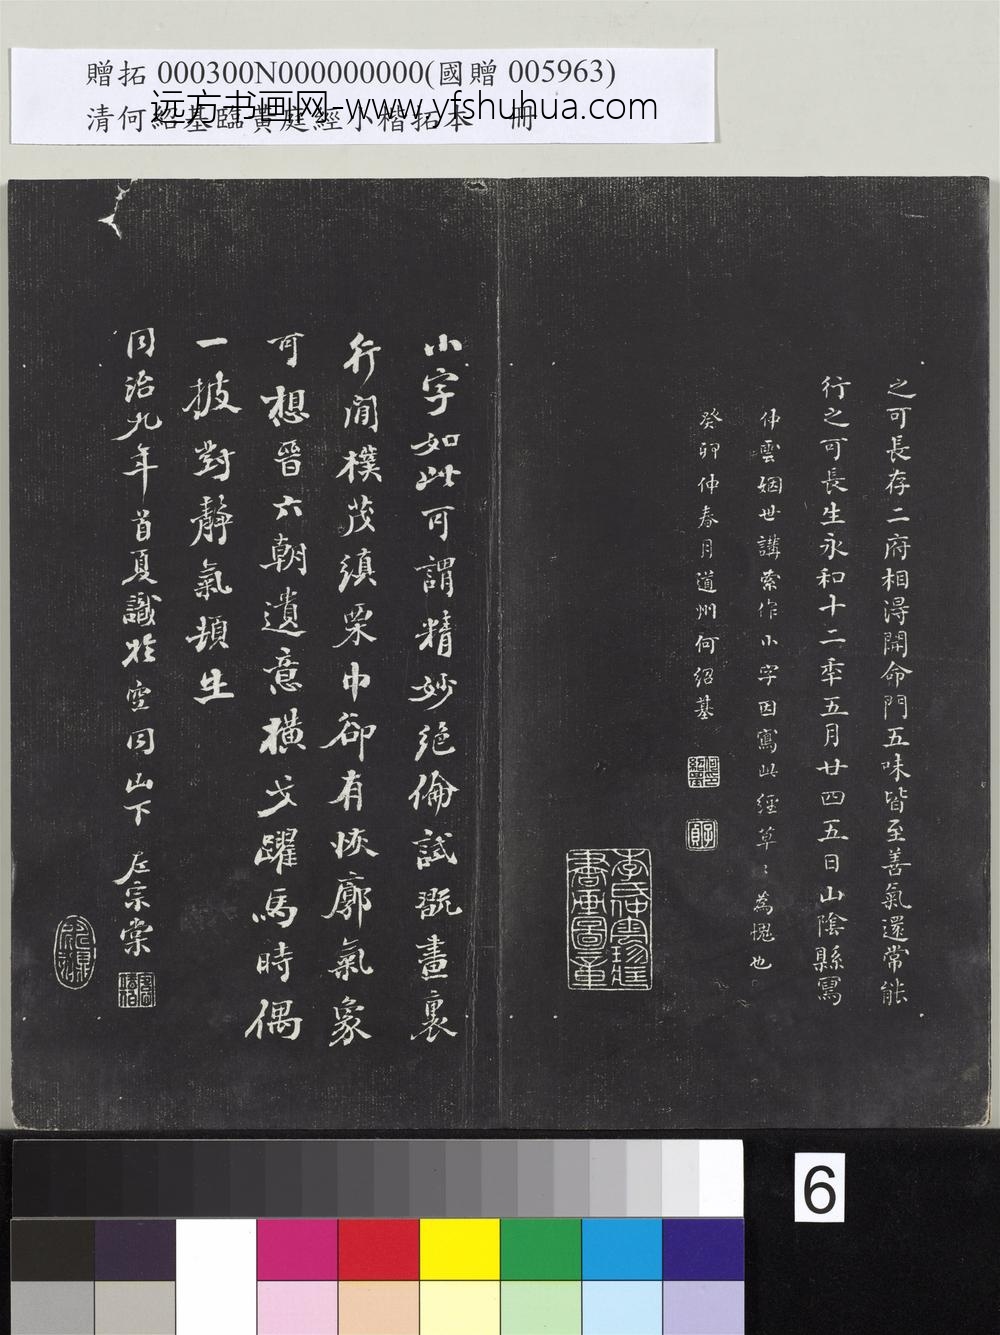 贈拓 000300N000000000(國贈 005963)
清何紹基臨黃庭經小楷拓本 冊
远方书画网-www.yfshuhua.com
之可長存二府相得開命門五味皆至善氣還常能
行之可長生永和十二季五月廿四五日山陰縣寫
仲雲姻世講索作小字因寫此經草〻為愧也
癸卯仲春月道州何紹基
小字如此可謂精妙絕倫試翫畫裏
行間樸茂縝栗中卻有恢廓氣象
可想晉六朝遺意橫戈躍馬時偶
一披對靜氣頓生
同治九年首夏識於空同山下 左宗棠
6